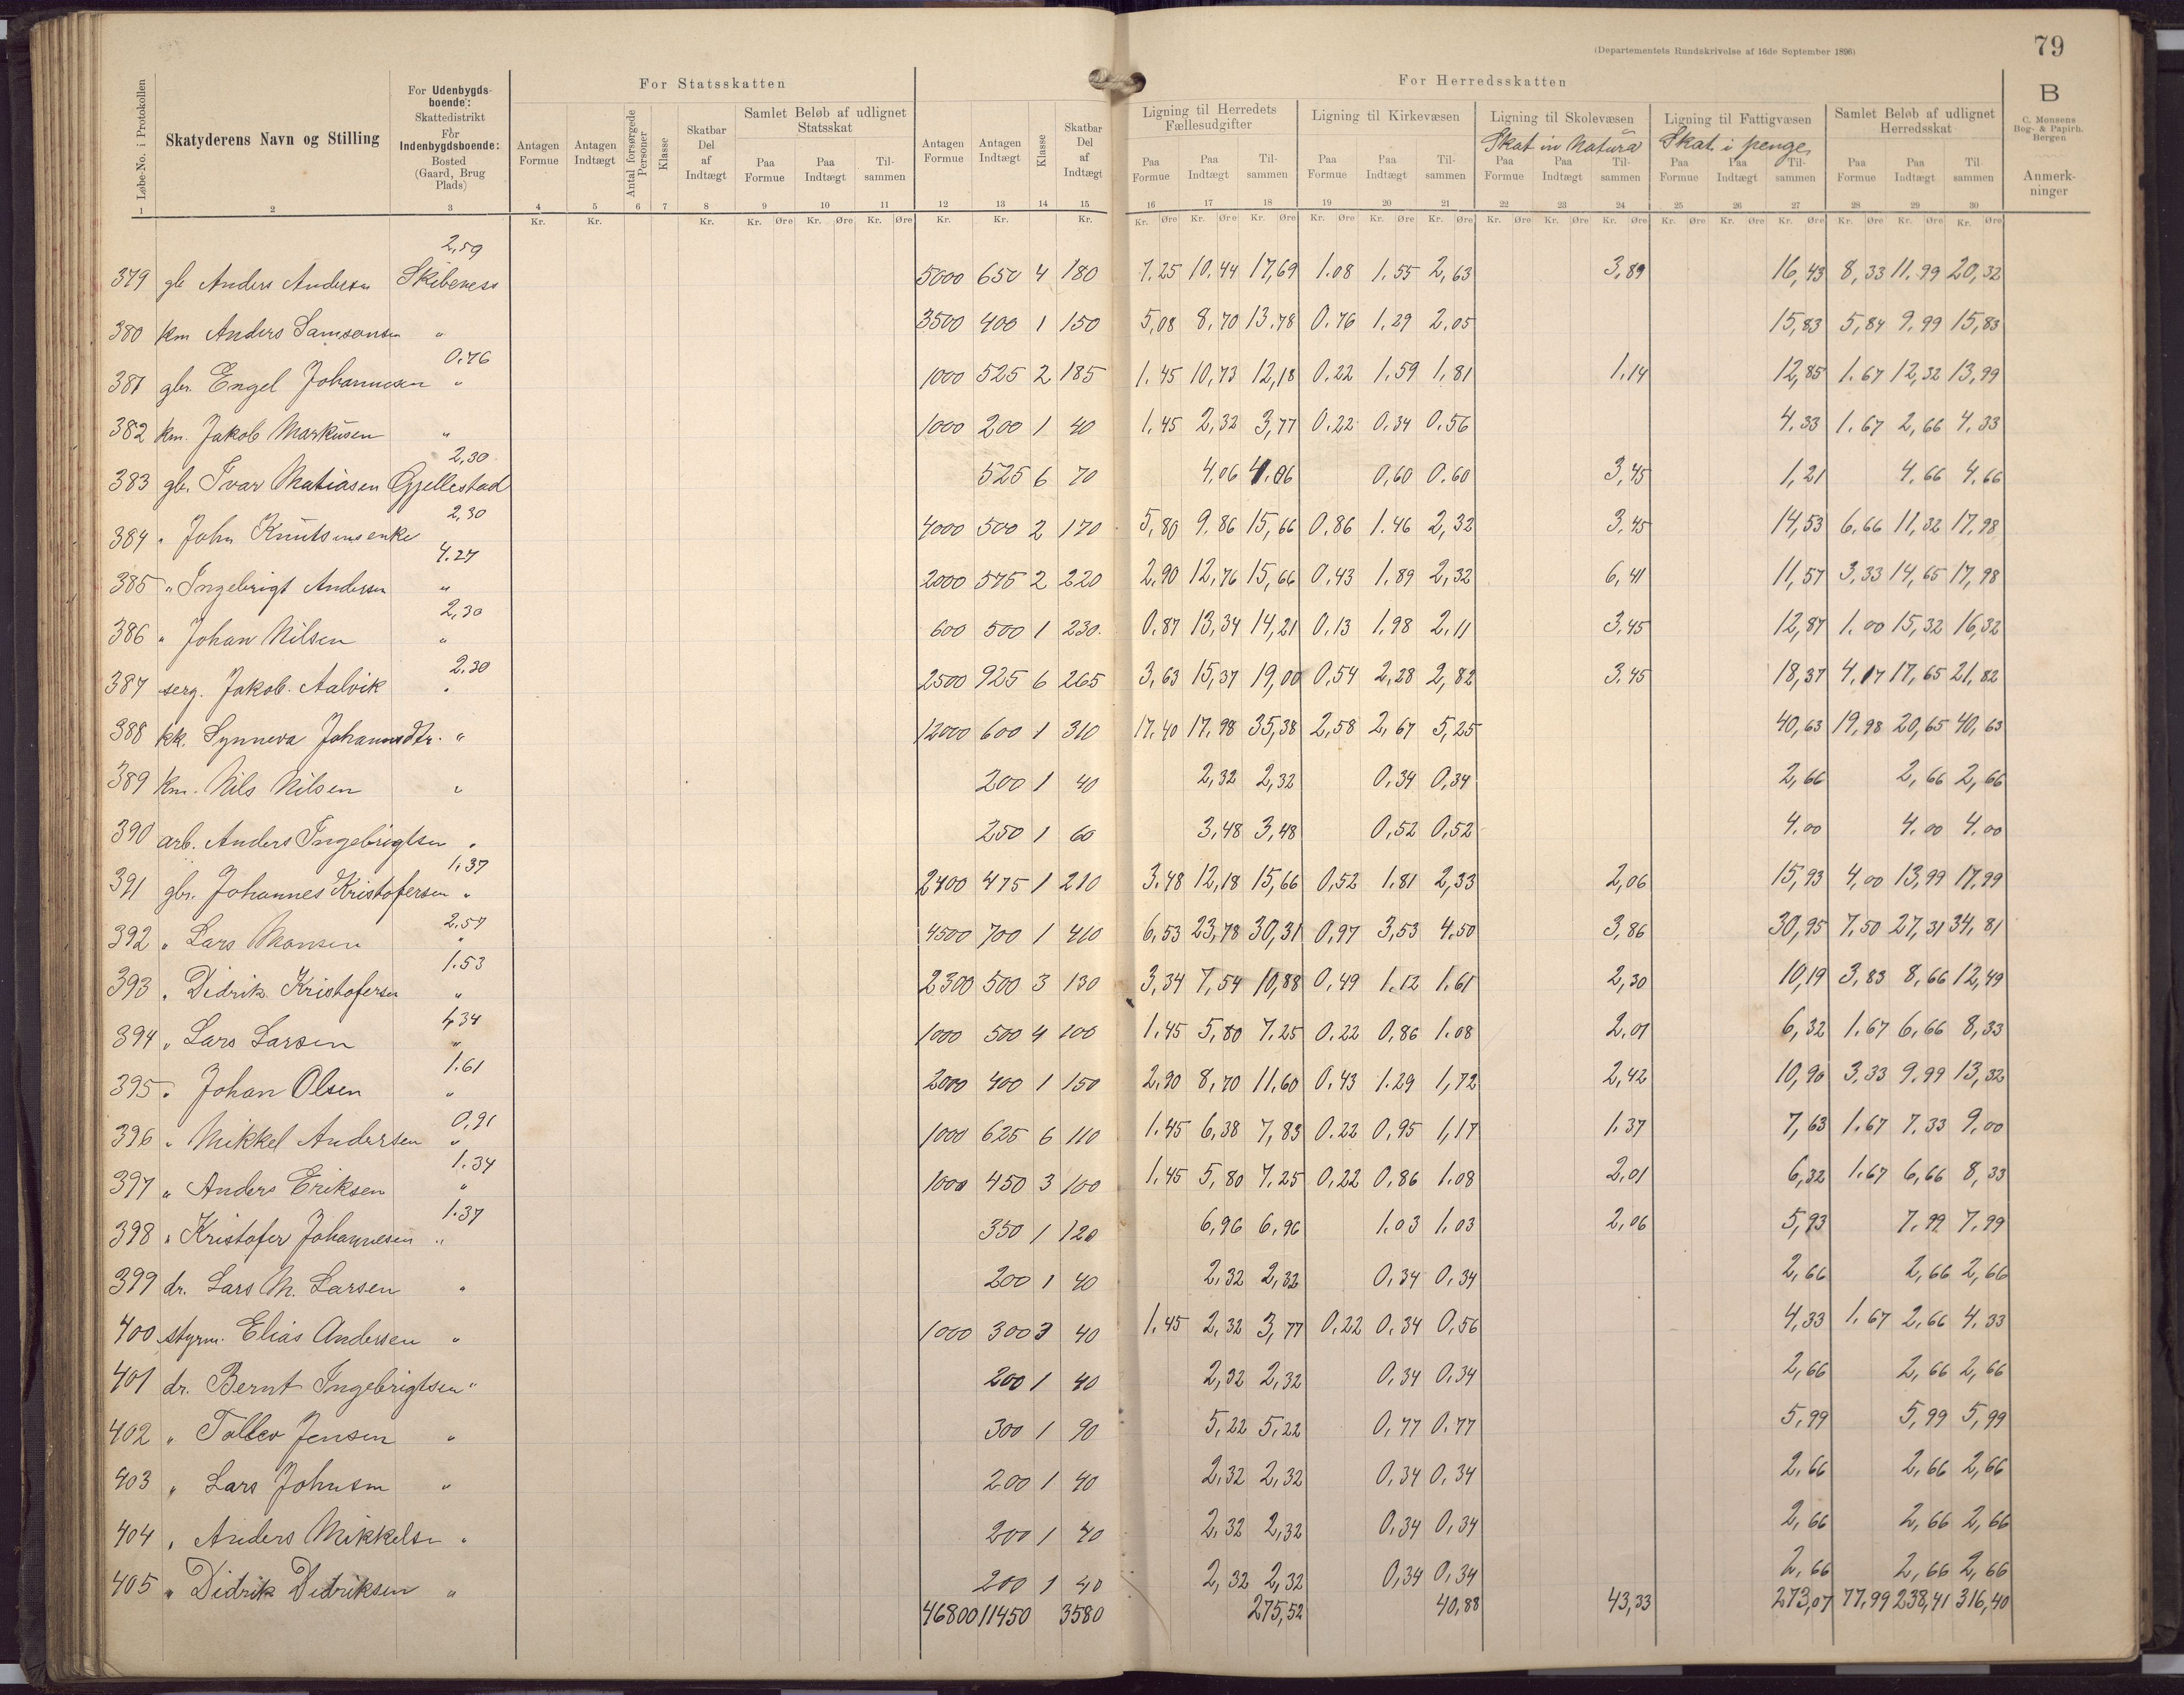 (Departementets Rundskrivelse af 16de September 1896)
79
For Statsskatten
For Herredsskatten
B
C. Monsens Bog- & Papirh. Bergen
Løbe-No. i Protokollen
Skatyderens Navn og Stilling
For Udenbygdsboende: Skattedistrikt For Indenbygdsboende: Bosted (Gaard, Brug Plads)
Antagen Formue
Antagen Indtægt
Antal forsørgede Personer
Klasse
Skatbar Del af Indtægt
Samlet Beløb af udlignet Statsskat
Paa Formue
Paa Indtægt
Tilsammen
Antagen Formue
Antagen Indtægt
Klasse
Skatbar Del af Indtægt
Ligning til Herredets Fællesudgifter
Paa Formue Paa Indtægt Tilsammen
Ligning til Kirkevæsen
Paa Formue Paa Indtægt Tilsammen
Ligning til Skolevæsen
Skat in Natura
Paa Formue Paa Indtægt Tilsammen
Ligning til Fattigvæsen
Skat i penge
Paa Formue Paa Indtægt Tilsammen
Samlet Beløb af udlignet Herredsskat
Paa Formue Paa Indtægt Til sammen
Anmerkninger
1 2 3 4 5 6 7 8 9 10 11 12 13 14 15 16 17 18 19 20 21 22 23 24 25 26 27 28 29 30
Kr. Kr. Kr. Kr. Øre Kr. Øre Kr. Øre Kr. Kr. Kr. Kr. Øre Kr. Øre Kr. Øre Kr. Øre Kr. Øre Kr. Øre Kr. Øre Kr. Øre Kr. Øre Kr. Øre Kr. Øre Kr. Øre Kr. Øre Kr. Øre Kr. Øre
2,59
379 gb Anders Andersen Skibeness 5000 650 4 180 7.25 10.44 17,69 1.08 1.55 2,63 3,89 16,43 8,33 11.99 20,32
380 km Anders Samsonsen " 3500 400 1 150 5,08 8,70 13.78 0.76 1.29 2.05 15,83 5,84 9.99 15,83
0.76
381 gbr. Engel Johannesen " 1000 525 2 185 1.45 10,73 12,18 0.22 1.59 1,81 1.14 12,85 1.67 12,32 13,99
382 km. Jakob Markusen " 1000 200 1 40 1.45 2,32 3,77 0.22 0.34 0.56 4.33 1.67 2,66 4.33
2,30
383 gb. Ivar Matiasen Gjellestad 525 6 70 4,06 4.06 0,60 0.60 3,45 1,21 4.66 4.66
2,30
384 " John Knutsens enke 4000 500 2 170 5,80 9.86 15,66 0.86 1.46 2,32 3.45 14,53 6.66 11,32 17.98
4.27
385 " Ingebrigt Andersen " 2000 575 2 220 2.90 12,76 15,66 0.43 1.89 2,32 6,41 11,57 3,33 14,65 17,98
2,30
386 " Johan Nilsen " 600 500 1 230. 0.87 13,34 14,21 0.13 1.98 2.11 3.45 12,87 1.00 15,32 16,32
2.30
387 serg. Jakob. Aalvik " 2500 925 6 265 3,63 15,37 19,00 0,54 2,28 2,82 3.45 18,37 4.17 17,65 21.82
388 kk. Synneva Johannesdtr. " 12000 600 1 310 17.40 17,98 35,38 2,58 2,67 5,25 40,63 19,98 20,65 40,63
389 km. Nils Nilsen " 200 1 40 2,32 2,32 0,34 0,34 2,66 2,66 2,66
390 arb. Anders Ingebrigtsen " 250 1 60 3,48 3,48 0,52 0,52 4.00 4.00 4.00
1,37
391 gbr. Johannes Kristofersen " 2400 475 1 210 3.48 12,18 15,66 0,52 1.81 2,33 2,06 15,93 4,00 13,99 17.99
2.57
392 " Lars Monsen " 4500 700 1 410 6,53 23,78 30,31 0,97 3,53 4.50 3,86 30,95 7,50 27,31 34,81
1.53
393 " Didrik Kristofersen " 2300 500 3 130 3,34 7,54 10,88 0,49 1.12 1.61 2,30 10,19 3,83 8,66 12,49
1,34
394 " Lars Larsen " 1000 500 4 100 1.45 5,80 7.25 0.22 0,86 1.08 2.01 6,32 1.67 6,66 8,33
1.61
395 " Johan Olsen " 2000 400 1 150 2,90 8,70 11.60 0,43 1.29 1,72 2,42 10,90 3,33 9.99 13,32
0,91
396 " Mikkel Andersen " 1000 625 6 110 1.45 6,38 7,83 0.22 0,95 1,17 1.37 7,63 1.67 7.33 9.00
1.34
397 " Anders Eriksen " 1000 450 3 100 1.45 5,80 7.25 0,22 0,86 1.08 2,01 6,32 1.67 6,66 8,33
1.37
398 " Kristofer Johannesen " 350 1 120 6,96 6,96 1.03 1.03 2,06 5,93 7.99 7.99
399 dr. Lars M. Larsen " 200 1 40 2,32 2,32 0,34 0,34 2,66 2,66 2,66
400 styrm. Elias Andersen " 1000 300 3 40 1,45 2,32 3,77 0,22 0,34 0,56 4,33 1.67 2,66 4,33
401 dr. Bernt Ingebrigtsen " 200 1 40 2,32 2,32 0,34 0,34 2,66 2,66 2,66
402 " Tollev Jensen " 300 1 90 5,22 5,22 0,77 0.77 5,99 5,99 5,99
403 " Lars Johnsen " 200 1 40 2,32 2,32 0,34 0,34 2,66 2,66 2,66
404 " Anders Mikkelsen " 200 1 40 2,32 2,32 0,34 0,34 2,66 2,66 2,66
405 " Didrik Didriksen " 200 1 40 2,32 2,32 0,34 0,34 2,66 2,66 2,66
46800 11450 3580 275,52 40,88 43,33 273,07 77,99 238,41 316,40